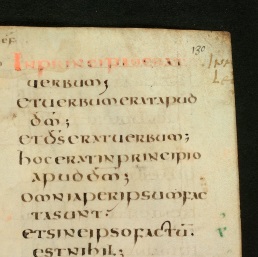 130
IN PRINCIPIO ERAT
UERBUM;
ET UERBUM ERAT APUD
DM̄;
ET DS̄ ERAT UERBUM;
HOC ERAT IN PRINCIPIO
APUD DM̄;
OMNIA PER IPSUM FAC
TA SUNT·
ET SINE IPSO FACTŪ
EST NIHIL;